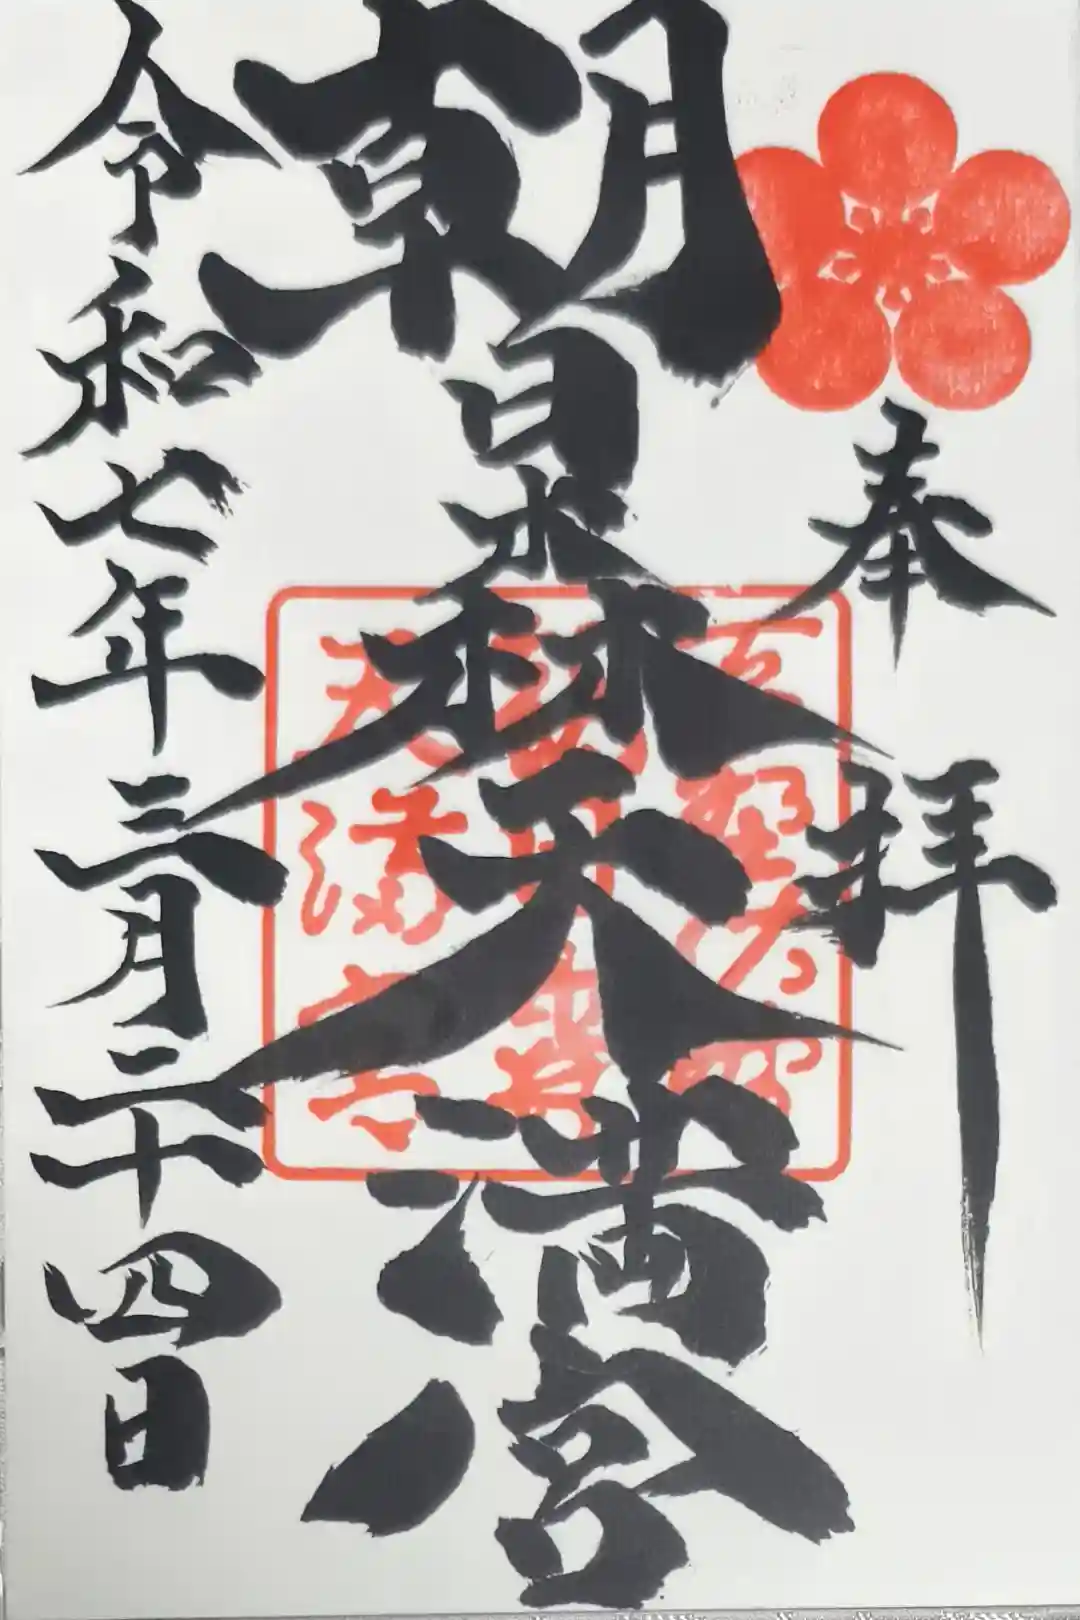 奉拝
朝日森天満宮
令和七年三月二十四日
天満宮